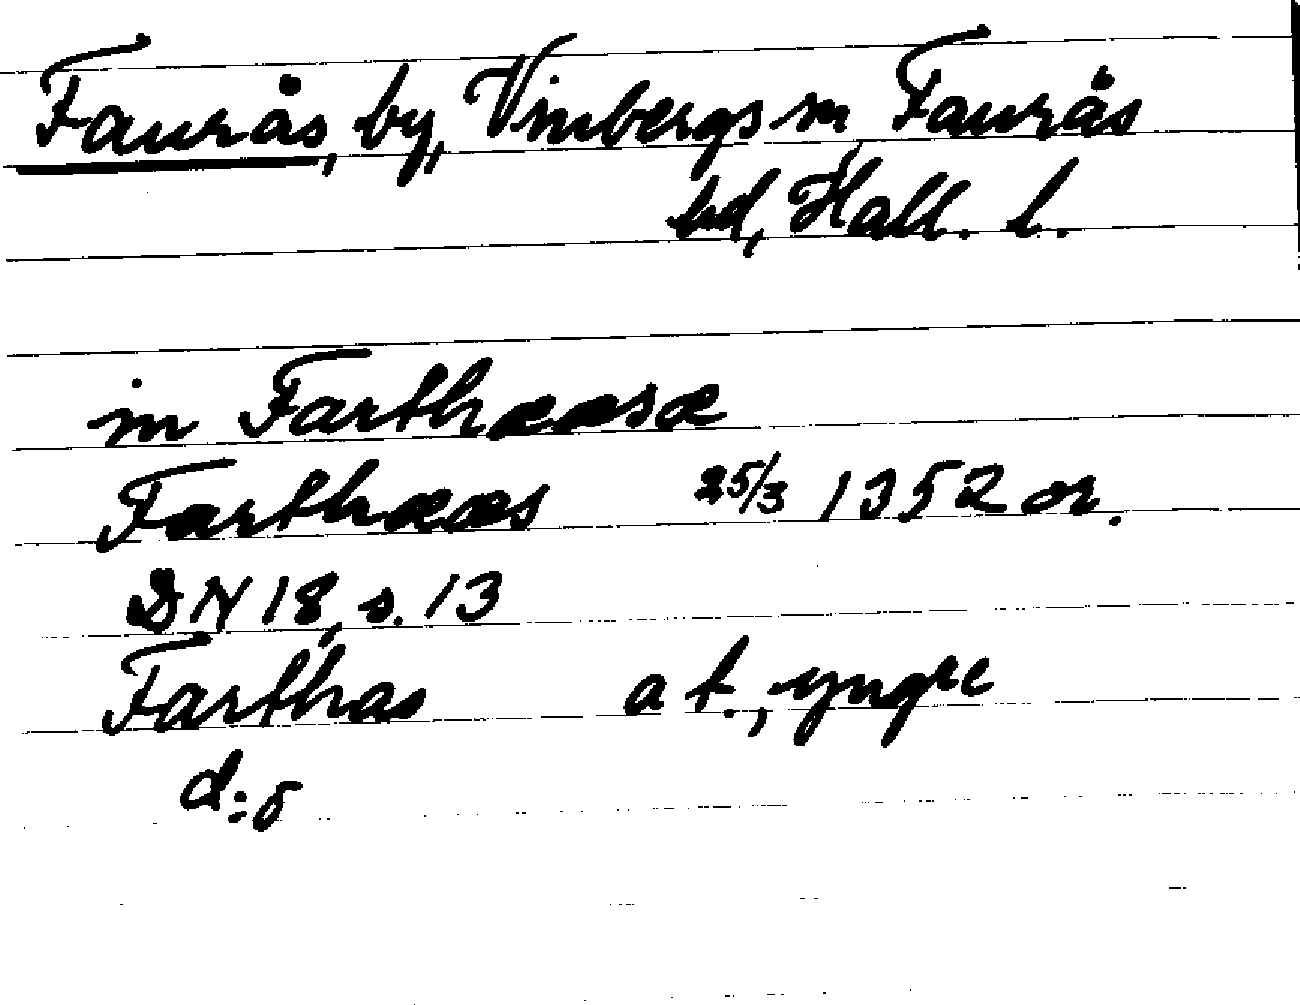 Faurås, by, Vinbergs sn, Faurås
hd, Hall. l.
in Farthææsæ
Farthææs 25/3 1352 or.
DN 18, s. 13
Farthas a t., yngre
d:o